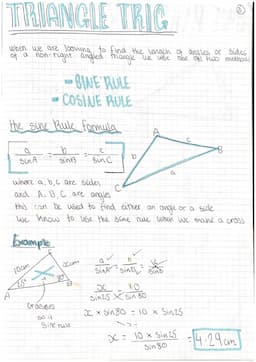 TRIANGLE TRIG
when we are looking to find the length of angles or sides
of a non-right angled triangle we use one of two methods
- SINE RULE
- COSINE RULE
The sine Rule Formula
a/sinA = b/sinB = c/sinC
A
c
B
b
a
C
where a, b, c are sides
and A, B, C are angles
this can be used to find either an angle or a side
we know to use the sine rule when we make a cross
Example
C
10cm
xcm
25°
80°
A
B
Crosses
so it
Sine rule
a/sinA = b/sinB = c/sinC
x/sin25 = 10/sin80
x × sin80 = 10 × sin25
x = 10 × sin25 / sin80 = 4.29cm